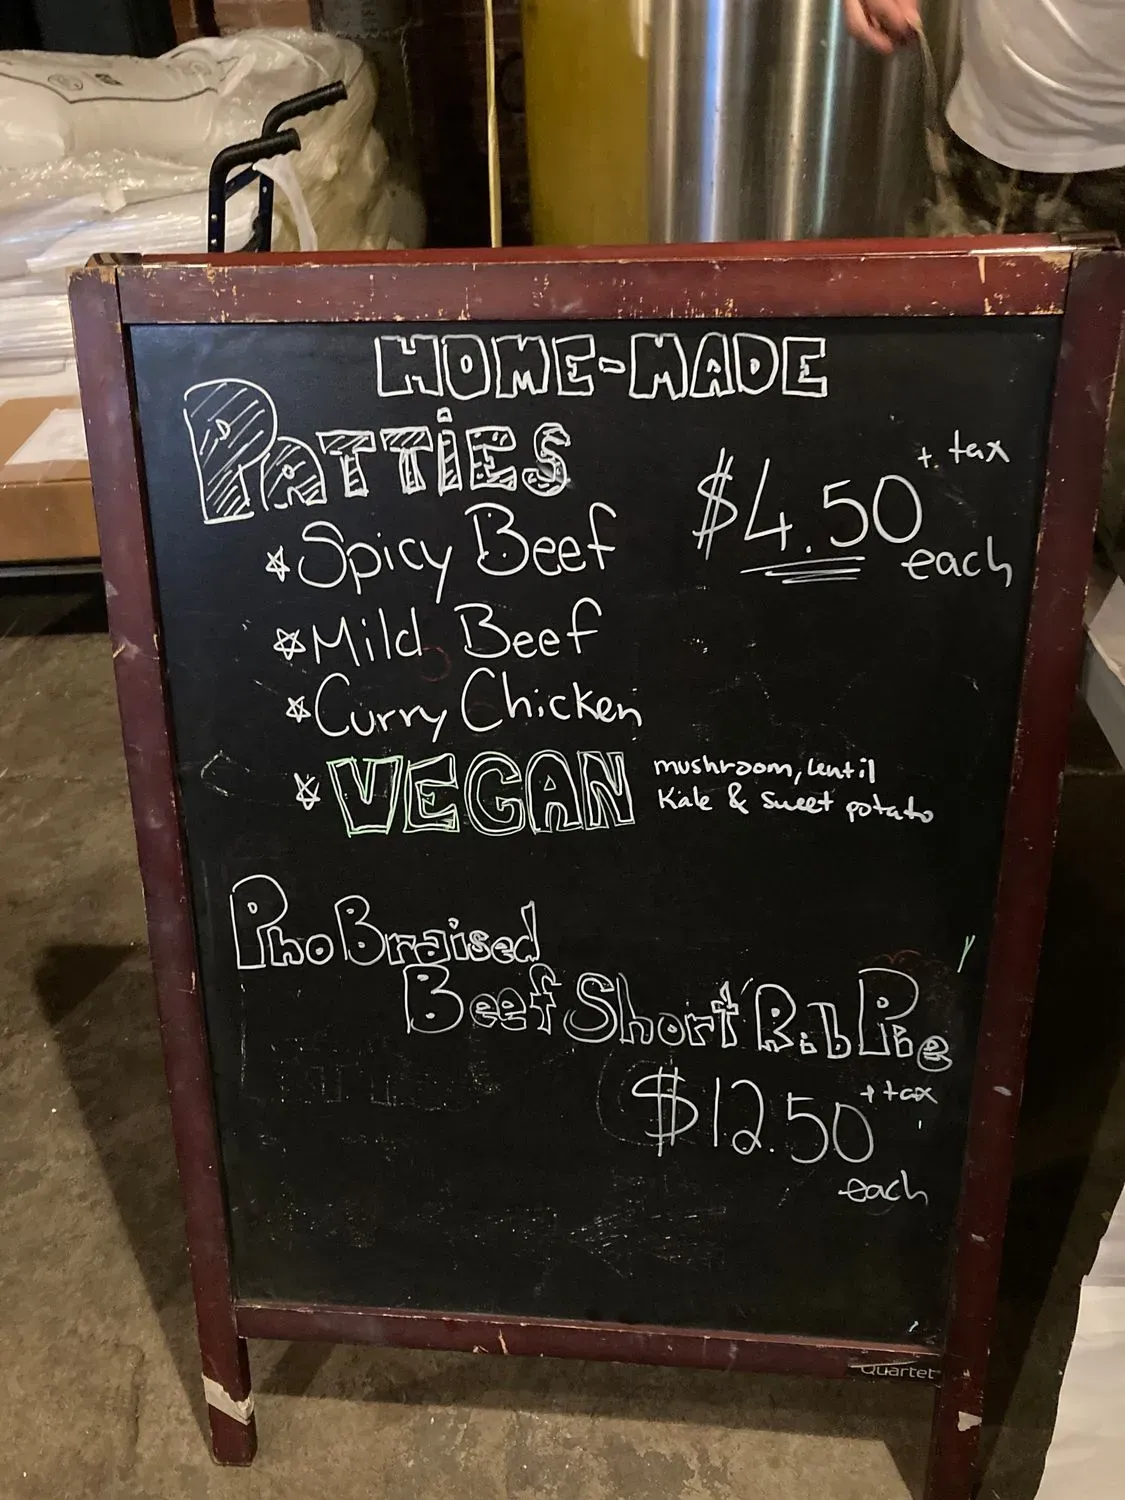 HOME-MADE
PATTiES
$4.50 + tax
each
Spicy Beef
Mild Beef
Curry Chicken
VEGAN
mushroom, lentil
Kale & sweet potato
Pho Braised
Beef Short Rib Pie
$12.50 + tax
each
Quartet